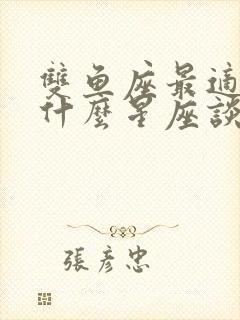 雙魚座最適
什麼星座談
張彥忠